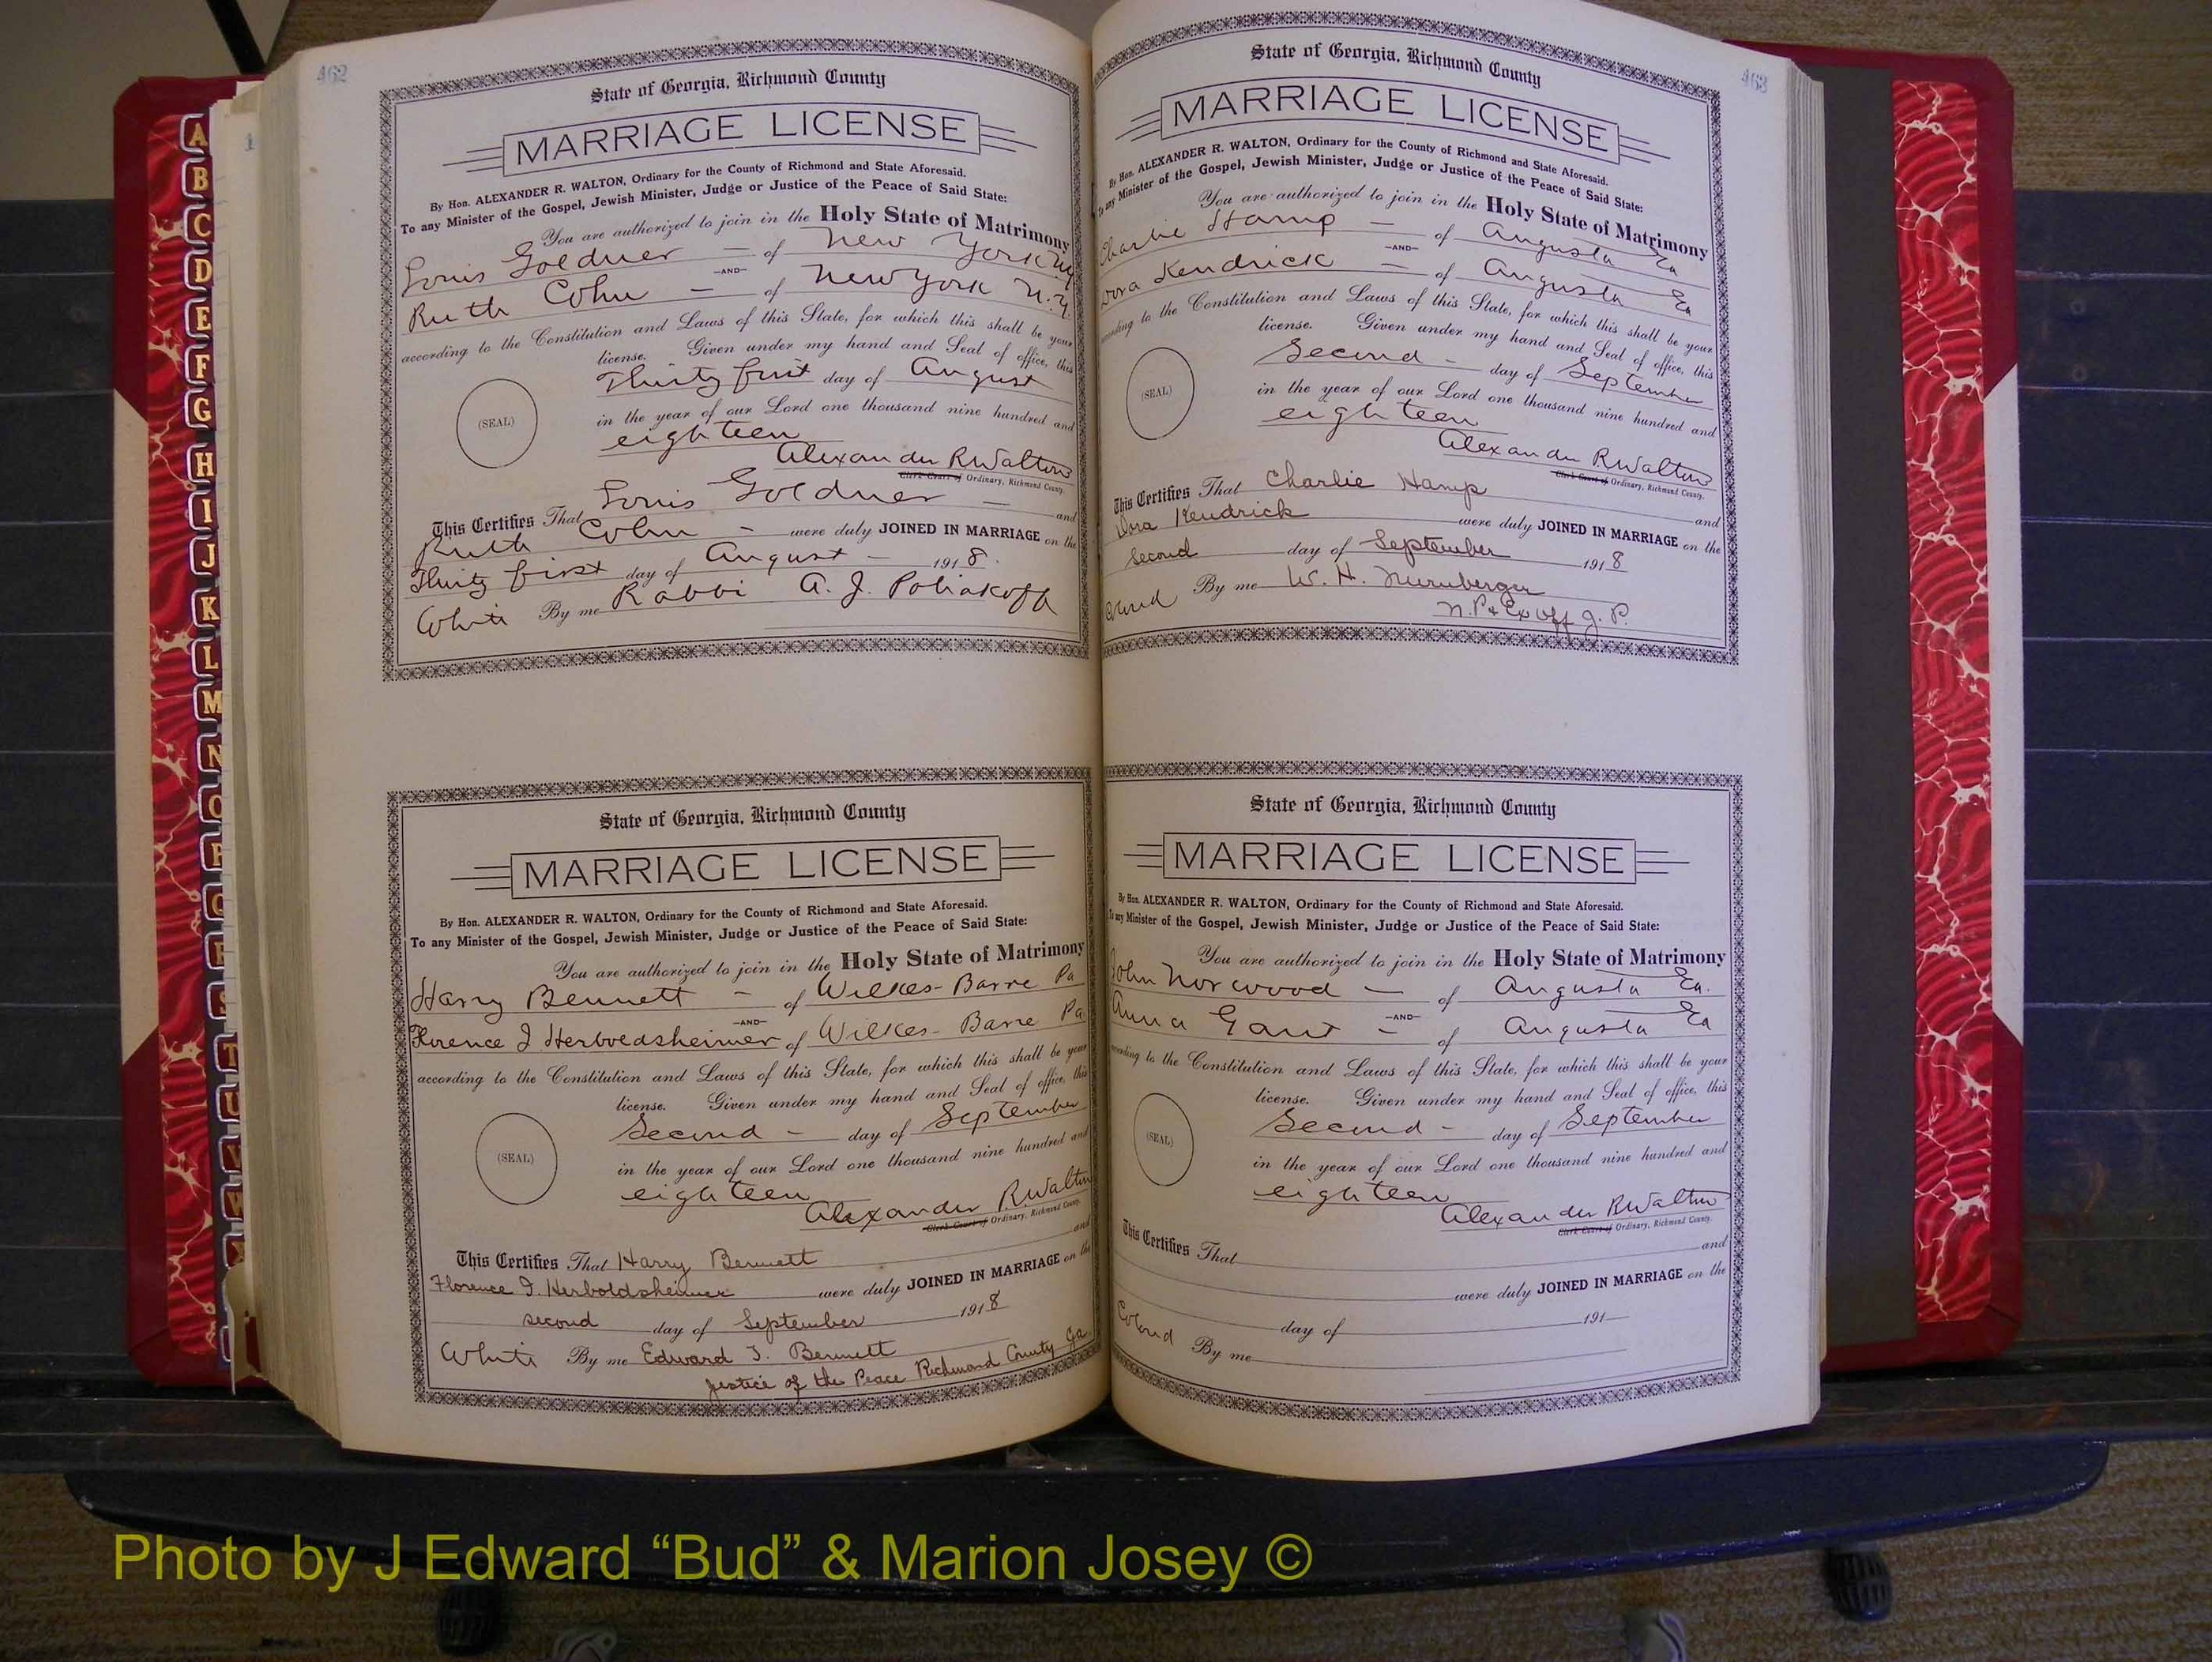 462
State of Georgia, Richmond County
MARRIAGE LICENSE
By Hon. ALEXANDER R. WALTON, Ordinary for the County of Richmond and State Aforesaid.
To any Minister of the Gospel, Jewish Minister, Judge or Justice of the Peace of Said State:
You are authorized to join in the Holy State of Matrimony
Louis Goldner — of New York NY
—AND—
Ruth Cohn — of New York N.Y.
according to the Constitution and Laws of this State, for which this shall be your
license. Given under my hand and Seal of office, this
Thirty first day of August
(SEAL)
in the year of our Lord one thousand nine hundred and
eighteen
Alexander R Walton
Clerk Court of Ordinary, Richmond County.
This Certifies That Louis Goldner — and
Ruth Cohn — were duly JOINED IN MARRIAGE on the
Thirty first day of August — 1918.
White By me Rabbi A. J. Poliakoff
State of Georgia, Richmond County
MARRIAGE LICENSE
By Hon. ALEXANDER R. WALTON, Ordinary for the County of Richmond and State Aforesaid.
To any Minister of the Gospel, Jewish Minister, Judge or Justice of the Peace of Said State:
You are authorized to join in the Holy State of Matrimony
Harry Bennett — of Wilkes-Barre Pa
—AND—
Florence I Herboedsheimer of Wilkes-Barre Pa
according to the Constitution and Laws of this State, for which this shall be your
license. Given under my hand and Seal of office, this
Second — day of September
(SEAL)
in the year of our Lord one thousand nine hundred and
eighteen
Alexander R. Walton
Clerk Court of Ordinary, Richmond County.
This Certifies That Harry Bennett and
Florence I. Herboldsheimer were duly JOINED IN MARRIAGE on the
second day of September 1918
White By me Edward T. Bennett
Justice of the Peace Richmond County Ga.
463
State of Georgia, Richmond County
MARRIAGE LICENSE
By Hon. ALEXANDER R. WALTON, Ordinary for the County of Richmond and State Aforesaid.
To any Minister of the Gospel, Jewish Minister, Judge or Justice of the Peace of Said State:
You are authorized to join in the Holy State of Matrimony
Charlie Hamp — of Augusta Ga
—AND—
Dora Kendrick — of Augusta Ga
according to the Constitution and Laws of this State, for which this shall be your
license. Given under my hand and Seal of office, this
Second — day of September
(SEAL)
in the year of our Lord one thousand nine hundred and
eighteen
Alexander R Walton
Clerk Court of Ordinary, Richmond County.
This Certifies That Charlie Hamp and
Dora Kendrick were duly JOINED IN MARRIAGE on the
second day of September 1918
Colored By me W. H. Nurnberger
N.P. & Ex Off J. P.
State of Georgia, Richmond County
MARRIAGE LICENSE
By Hon. ALEXANDER R. WALTON, Ordinary for the County of Richmond and State Aforesaid.
To any Minister of the Gospel, Jewish Minister, Judge or Justice of the Peace of Said State:
You are authorized to join in the Holy State of Matrimony
John Norwood — of Augusta Ga.
—AND—
Anna Gant — of Augusta Ga
according to the Constitution and Laws of this State, for which this shall be your
license. Given under my hand and Seal of office, this
Second — day of September
(SEAL)
in the year of our Lord one thousand nine hundred and
eighteen
Alexander R Walton
Clerk Court of Ordinary, Richmond County.
This Certifies That and
were duly JOINED IN MARRIAGE on the
day of 191
Colored By me
A
B
C
D
E
F
G
H
I
J
K
L
M
N
O
P
Q
R
S
T
U
V
W
X
Photo by J Edward “Bud” & Marion Josey ©